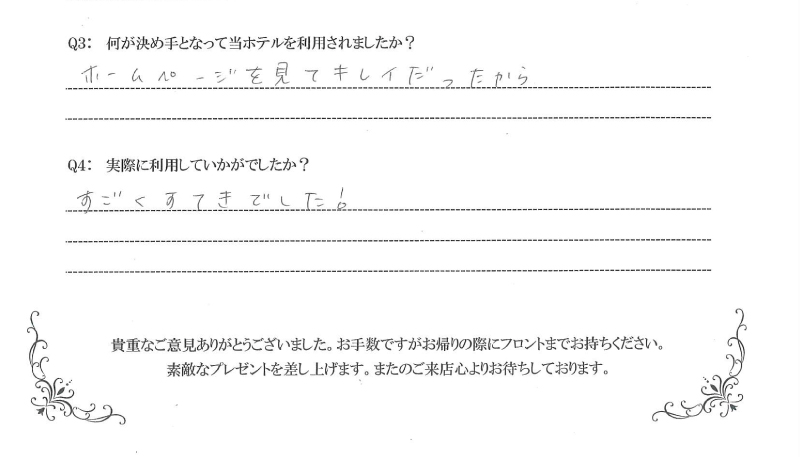 Q3: 何が決め手となって当ホテルを利用されましたか?
ホームページを見てキレイだったから
Q4: 実際に利用していかがでしたか?
すごくすてきでした!
貴重なご意見ありがとうございました。お手数ですがお帰りの際にフロントまでお持ちください。
素敵なプレゼントを差し上げます。またのご来店心よりお待ちしております。